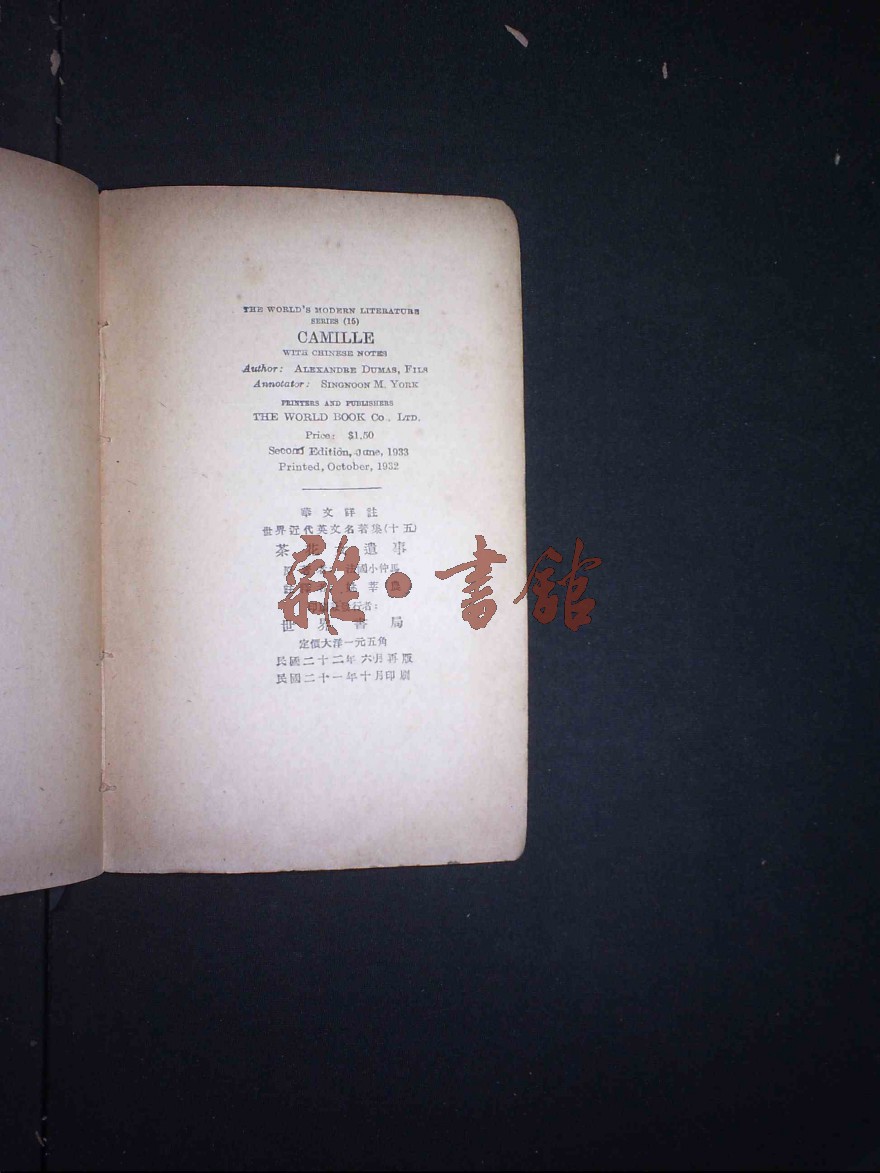 THE WORLD'S MODERN LITERATURE
SERIES (15)
CAMILLE
WITH CHINESE NOTES
Author: ALEXANDRE DUMAS, FILS
Annotator: SINGNOON M. YORK
PRINTERS AND PUBLISHERS
THE WORLD BOOK Co., LTD.
Price: $1.50
Second Edition, June, 1933
Printed, October, 1932
華文詳註
世界近代英文名著集(十五)
茶 遺事
國小仲馬
行者:
世界書局
定價大洋一元五角
民國二十二年六月再版
民國二十一年十月印刷
雜·書館